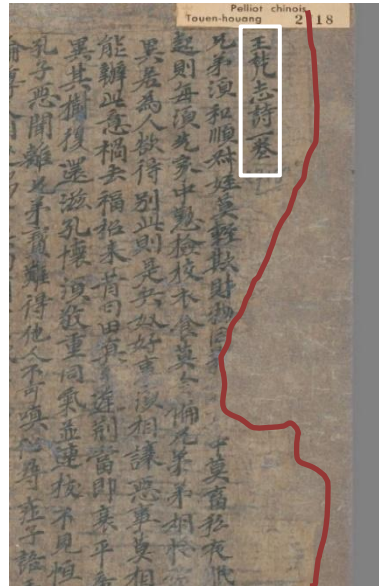 Pelliot chinois
Touen-houang 2 18
王梵志詩一卷
兄弟須和順叔姪莫輕欺財物同 中莫畜私夜眠
起則每須先家中懃檢校衣食莫令偏兄弟
異居為人欲得別此則是兵奴好事須相讓惡事莫相
能辦此意禍去福招來昔日田真分庭荊當即衰平章
異其樹復還滋孔懷須敬重同氣並連枝不見恒
孔子惡聞離兄弟寶難得他人不可嗔但尋莊子語